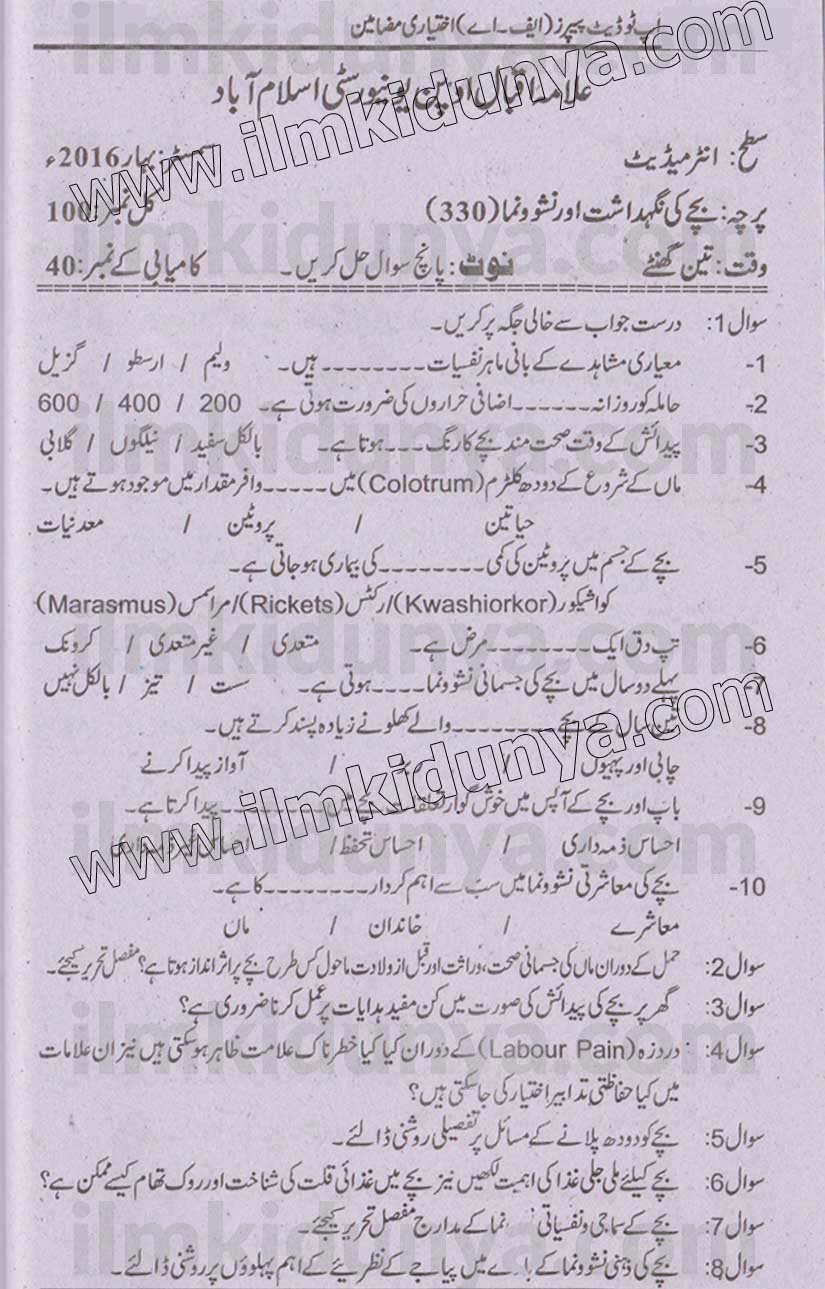 اپ ٹو ڈیٹ پیپرز (ایف۔اے) اختیاری مضامین
علامہ اقبال اوپن یونیورسٹی اسلام آباد
سطح: انٹرمیڈیٹ سمسٹر: بہار 2016ء
پرچہ: بچے کی نگہداشت اور نشوونما (330) کل نمبر: 100
وقت: تین گھنٹے نوٹ: پانچ سوال حل کریں۔ کامیابی کے نمبر: 40
سوال 1: درست جواب سے خالی جگہ پر کریں۔
1- معیاری مشاہدے کے بانی ماہر نفسیات -------- ہیں۔ ولیم / ارسطو / گزیل
2- حاملہ کو روزانہ ------ اضافی حراروں کی ضرورت ہوتی ہے۔ 200 / 400 / 600
3- پیدائش کے وقت صحت مند بچے کا رنگ --- ہوتا ہے۔ بالکل سفید / نیلگوں / گلابی
4- ماں کے شروع کے دودھ کلٹرم (Colotrum) میں ----- وافر مقدار میں موجود ہوتے ہیں۔
حیاتین / پروٹین / معدنیات
5- بچے کے جسم میں پروٹین کی کمی -------- کی بیماری ہو جاتی ہے۔
کواشیکور (Kwashiorkor)/ رکٹس (Rickets)/ مراسمس (Marasmus)
6- تپ دق ایک -------- مرض ہے۔ متعدی / غیر متعدی / کرونک
7- پہلے دو سال میں بچے کی جسمانی نشوونما ---- ہوتی ہے۔ ست / تیز / بالکل نہیں
8- تین سال کے بچے -------- والے کھلونے زیادہ پسند کرتے ہیں۔
چابی اور پہیوں / / آواز پیدا کرنے
9- باپ اور بچے کے آپس میں خوش گوار تعلقات بچے میں -------- پیدا کرتا ہے۔
احساس ذمہ داری / احساس تحفظ /
10- بچے کی معاشرتی نشوونما میں سب سے اہم کردار -------- کا ہے۔
معاشرے / خاندان / ماں
سوال 2: حمل کے دوران ماں کی جسمانی صحت، وراثت اور قبل از ولادت ماحول کس طرح بچے پر اثر انداز ہوتا ہے؟ مفصل تحریر کیجئے۔
سوال 3: گھر پر بچے کی پیدائش کی صورت میں کن مفید ہدایات پر عمل کرنا ضروری ہے؟
سوال 4: دردزہ (Labour Pain) کے دوران کیا کیا خطرناک علامت ظاہر ہو سکتی ہیں نیز ان علامات
میں کیا حفاظتی تدابیر اختیار کی جا سکتی ہیں؟
سوال 5: بچے کو دودھ پلانے کے مسائل پر تفصیلی روشنی ڈالئے۔
سوال 6: بچے کیلئے ملی جلی غذا کی اہمیت لکھیں نیز بچے میں غذائی قلت کی شناخت اور روک تھام کیسے ممکن ہے؟
سوال 7: بچے کے سماجی و نفسیاتی نما کے مدارج مفصل تحریر کیجئے۔
سوال 8: بچے کی ذہنی نشوونما کے بارے میں پیاجے کے نظریئے کے اہم پہلوؤں پر روشنی ڈالئے۔
www.ilmkidunya.com
www.ilmkidunya.com
ilmkidunya.com
ilmkidunya.com
ilmkidunya.com
ilmkidunya.com
ilmkidunya.com
ilmkidunya.com
ilmkidunya.com